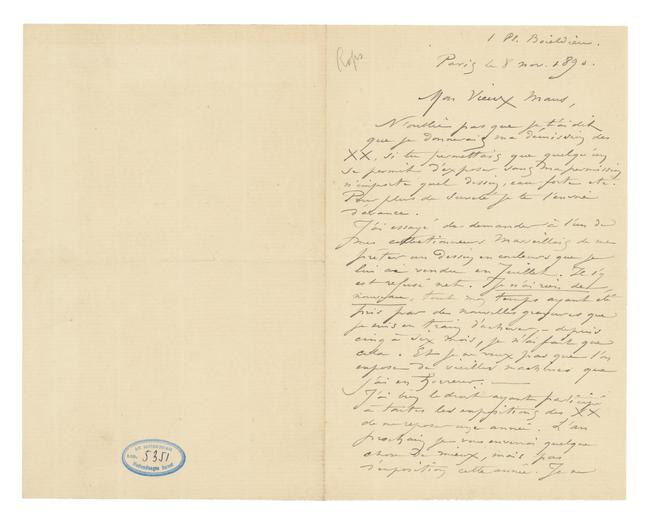 Rops
1 Pl. Boieldieu.
Paris le 8 nov. 1890.
Mon Vieux Maus,
N'oublie pas que je t'ai dit
que je donnerais ma démission des
XX, si tu permettais que quelqu'un
se permit d'exposer sans ma permission
n'importe quel dessin, eau forte etc.
Pour plus de sureté je te l'envoie
d'avance.
J'ai essayé de demander à l'un de
mes collectionneurs Marseillais de me
prêter un dessin en couleurs que je
lui ai vendu en Juillet. Il s'y
est refusé net. Je n'ai rien de
nouveau, tout mon temps ayant été
pris par de nouvelles gravures que
je suis en train d'achever, – depuis
cinq à six mois, je n'ai fait que
cela. Et je ne veux pas que l'on
expose de vieilles machines que
j'ai en horreur. —
J'ai bien le droit ayant participé
à toutes les expositions des XX
de me reposer une année. L'an
prochain je vous enverrai quelque
chose de mieux, mais pas
d'exposition cette année. Je ne
5351